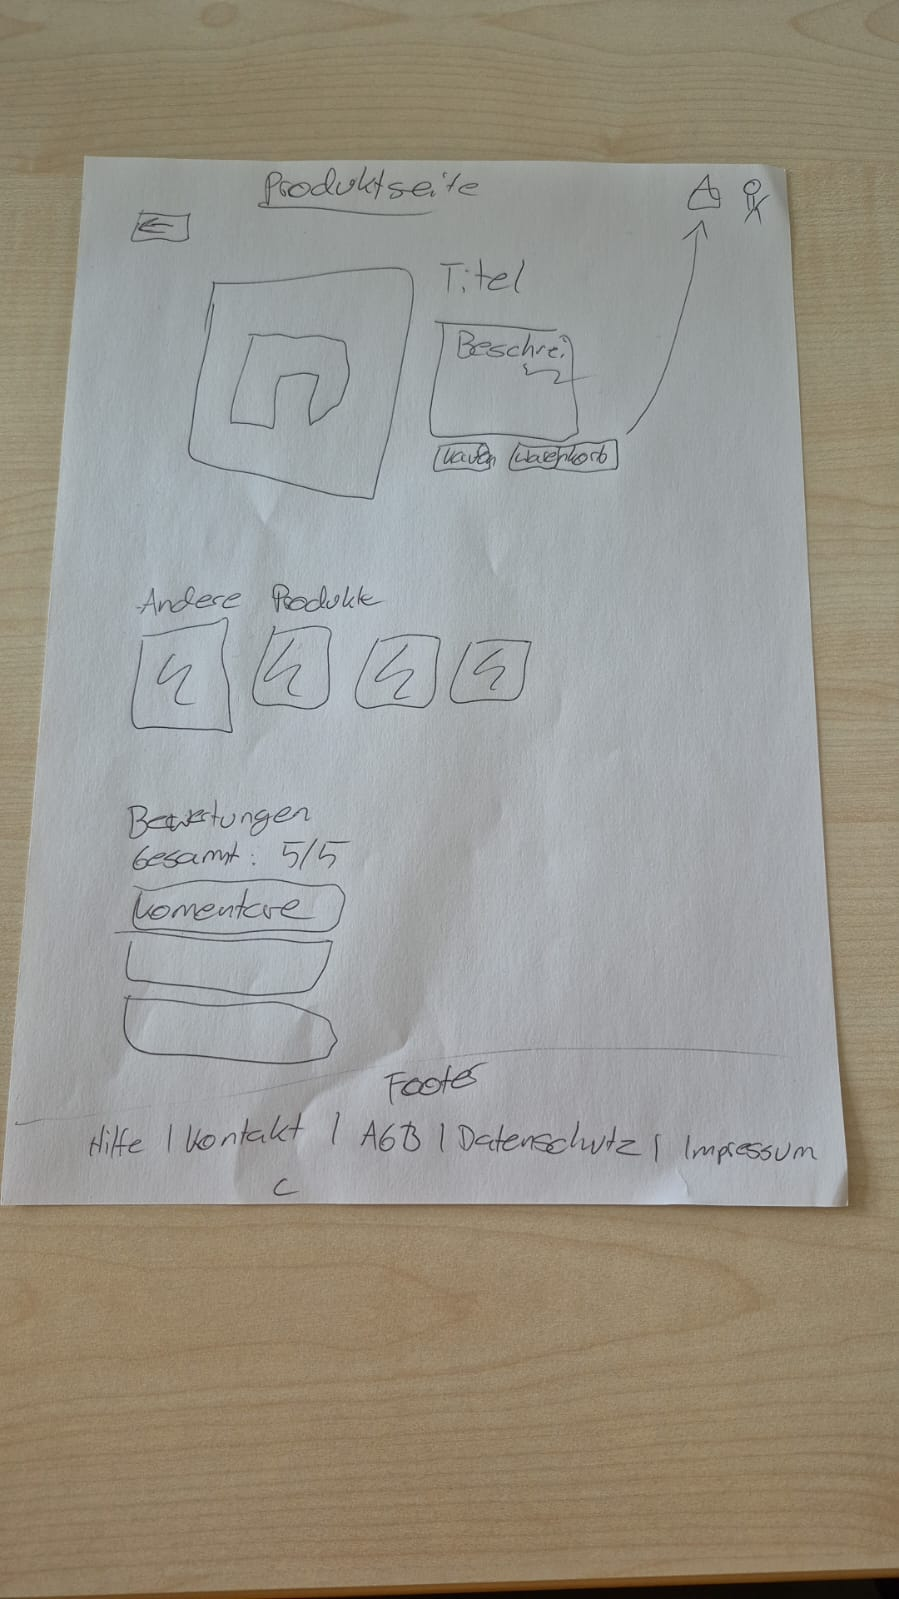 Produktseite
Titel
Beschrei
kaufen
Warenkorb
Andere Produkte
Bewertungen
Gesamt: 5/5
Komentare
Footer
Hilfe | Kontakt | AGB | Datenschutz | Impressum
C